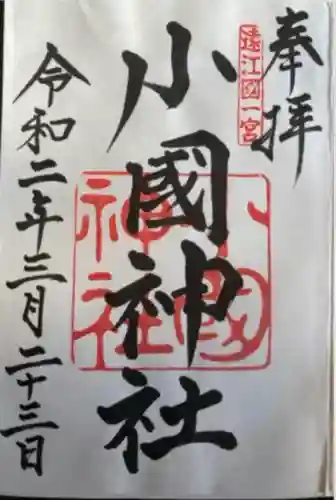 奉拝
遠江國一宮
小國神社
小國神社
令和二年三月二十三日